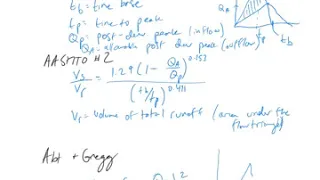 tb = time base
tp = time to peak
Qp = post-dev peak (inflow)
QA = allowable post dev peak (outflow)
QA
tp
tb
AASHTO #2
Vs/Vr = 1.29(1 - QA/Qp)^0.153 / (tb/tp)^0.411
Vr = volume of total runoff (area under the
flow triangle)
Abt + Grigg